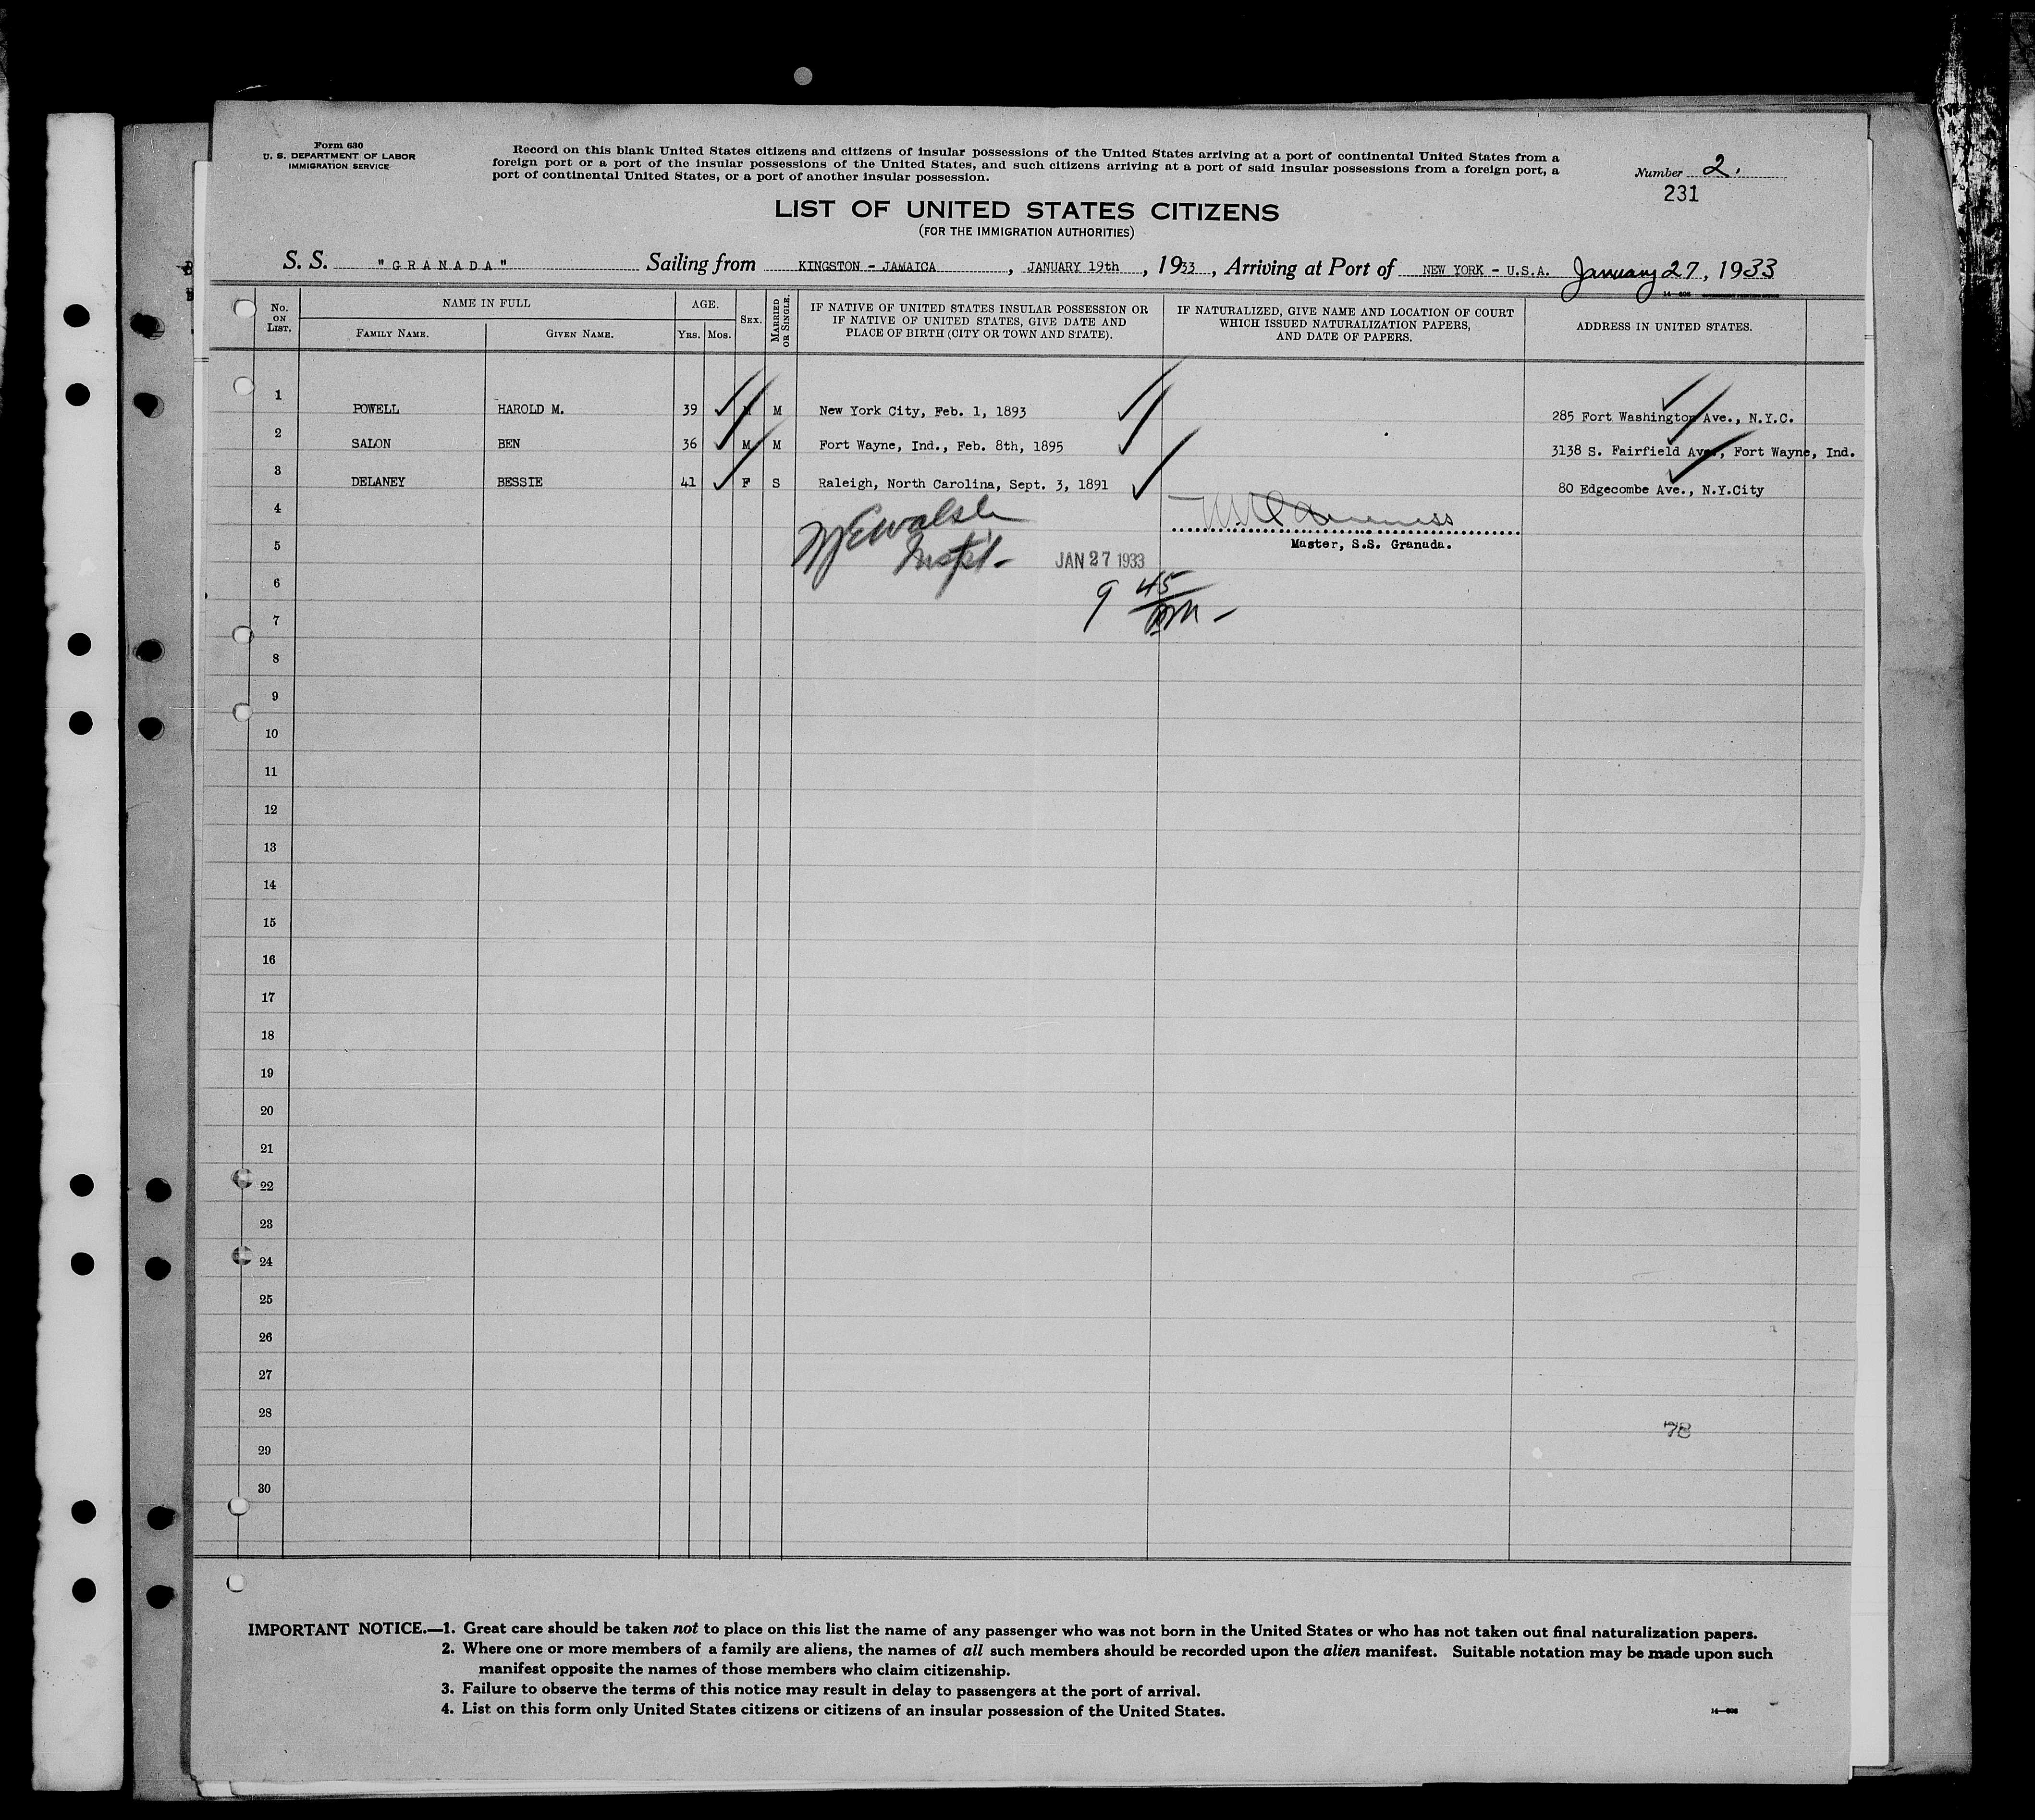 Form 630
U. S. DEPARTMENT OF LABOR
IMMIGRATION SERVICE
Record on this blank United States citizens and citizens of insular possessions of the United States arriving at a port of continental United States from a
foreign port or a port of the insular possessions of the United States, and such citizens arriving at a port of said insular possessions from a foreign port, a
port of continental United States, or a port of another insular possession.
Number 2.
231
LIST OF UNITED STATES CITIZENS
(FOR THE IMMIGRATION AUTHORITIES)
S. S. "GRANADA" Sailing from KINGSTON - JAMAICA, JANUARY 19th, 1933, Arriving at Port of NEW YORK - U.S.A. January 27, 1933
No. ON LIST.
NAME IN FULL
FAMILY NAME. GIVEN NAME.
AGE.
YRS. MOS.
SEX.
MARRIED OR SINGLE.
IF NATIVE OF UNITED STATES INSULAR POSSESSION OR
IF NATIVE OF UNITED STATES, GIVE DATE AND
PLACE OF BIRTH (CITY OR TOWN AND STATE).
IF NATURALIZED, GIVE NAME AND LOCATION OF COURT
WHICH ISSUED NATURALIZATION PAPERS,
AND DATE OF PAPERS.
ADDRESS IN UNITED STATES.
1 POWELL HAROLD M. 39 M M New York City, Feb. 1, 1893 285 Fort Washington Ave., N.Y.C.
2 SALON BEN 36 M M Fort Wayne, Ind., Feb. 8th, 1895 3138 S. Fairfield Ave., Fort Wayne, Ind.
3 DELANEY BESSIE 41 F S Raleigh, North Carolina, Sept. 3, 1891 80 Edgecombe Ave., N.Y.City
4
Walsh
5 Master, S.S. Granada.
JAN 27 1933
6
9 45
7
8
9
10
11
12
13
14
15
16
17
18
19
20
21
22
23
24
25
26
27
28
78
29
30
IMPORTANT NOTICE.—1. Great care should be taken not to place on this list the name of any passenger who was not born in the United States or who has not taken out final naturalization papers.
2. Where one or more members of a family are aliens, the names of all such members should be recorded upon the alien manifest. Suitable notation may be made upon such
manifest opposite the names of those members who claim citizenship.
3. Failure to observe the terms of this notice may result in delay to passengers at the port of arrival.
4. List on this form only United States citizens or citizens of an insular possession of the United States.